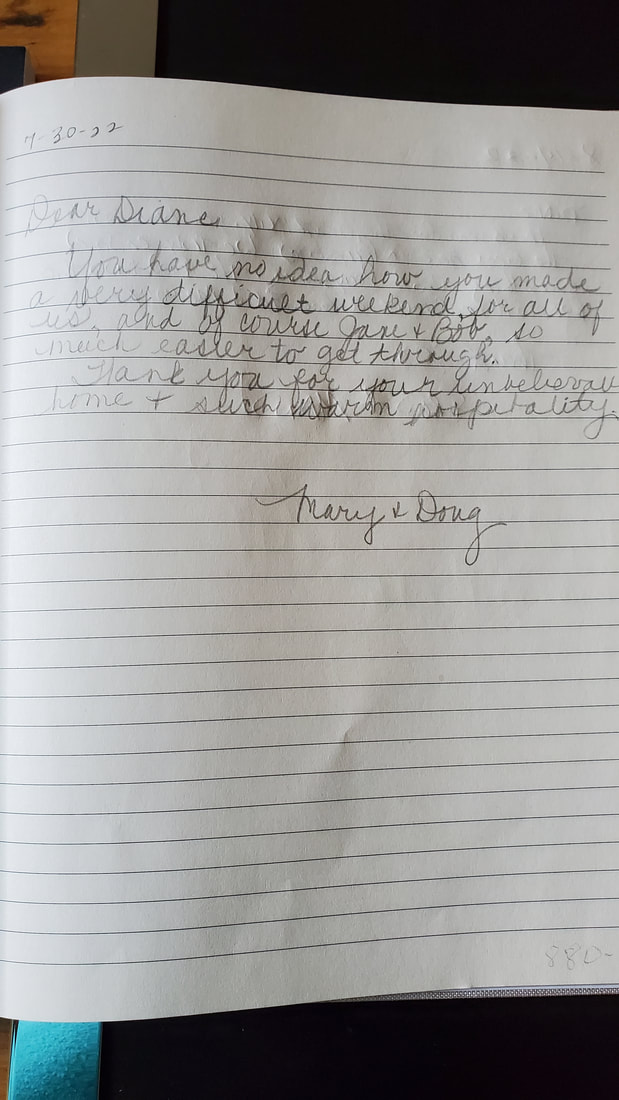 7-30-22
Dear Diane,
You have no idea how you made
a very difficult weekend, for all of
us, and of course Jane & Bob, so
much easier to get through.
Thank you for your unbelievab
home + such warm hospitality.
Mary & Doug
880-